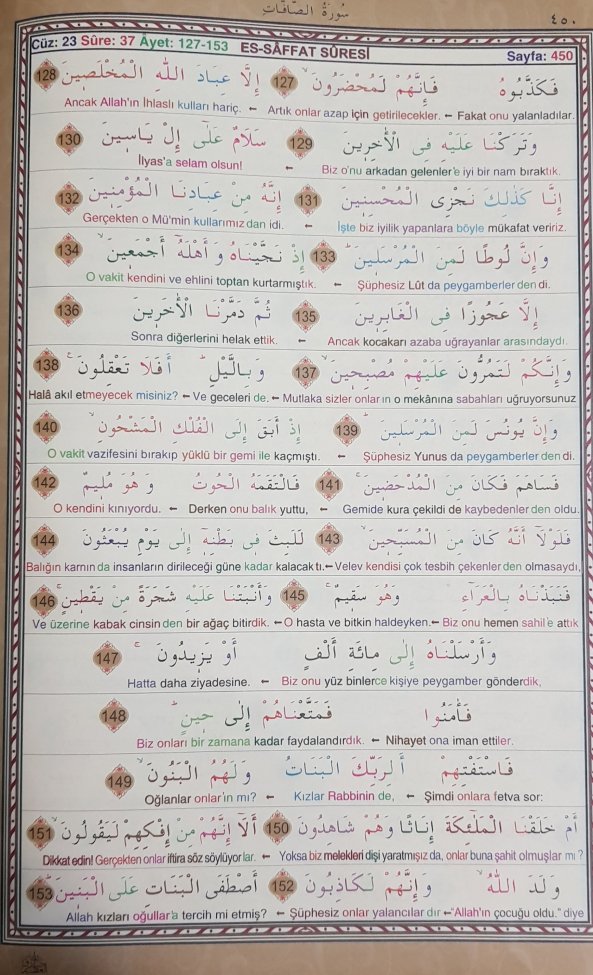 سُورَةُ الصَّافَّاتِ
٤٥٠
Cüz: 23 Sûre: 37 Âyet: 127-153 ES-SÂFFAT SÛRESİ Sayfa: 450
فَكَذَّبُوهُ فَاِنَّهُمْ لَمُحْضَرُونَ 127 اِلَّا عِبَادَ اللّٰهِ الْمُخْلَصِينَ 128
Ancak Allah'ın İhlaslı kulları hariç. ← Artık onlar azap için getirilecekler. ← Fakat onu yalanladılar.
وَتَرَكْنَا عَلَيْهِ فِى الْاٰخِرِينَ 129 سَلَامٌ عَلٰٓى اِلْ يَاسِينَ 130
İlyas'a selam olsun! ← Biz o'nu arkadan gelenler'e iyi bir nam bıraktık.
اِنَّا كَذٰلِكَ نَجْزِى الْمُحْسِنِينَ 131 اِنَّهُ مِنْ عِبَادِنَا الْمُؤْمِنِينَ 132
Gerçekten o Mü'min kullarımızdan idi. ← İşte biz iyilik yapanlara böyle mükafat veririz.
وَاِنَّ لُوطًا لَمِنَ الْمُرْسَلِينَ 133 اِذْ نَجَّيْنَاهُ وَاَهْلَهُٓ اَجْمَعِينَ 134
O vakit kendini ve ehlini toptan kurtarmıştık. ← Şüphesiz Lût da peygamberlerden di.
اِلَّا عَجُوزًا فِى الْغَابِرِينَ 135 ثُمَّ دَمَّرْنَا الْاٰخَرِينَ 136
Sonra diğerlerini helak ettik. ← Ancak kocakarı azaba uğrayanlar arasındaydı.
وَاِنَّكُمْ لَتَمُرُّونَ عَلَيْهِمْ مُصْبِحِينَ 137 وَبِالَّيْلِ اَفَلَا تَعْقِلُونَ 138
Halâ akıl etmeyecek misiniz? ← Ve geceleri de. ← Mutlaka sizler onların o mekânına sabahları uğruyorsunuz
وَاِنَّ يُونُسَ لَمِنَ الْمُرْسَلِينَ 139 اِذْ اَبَقَ اِلَى الْفُلْكِ الْمَشْحُونِ 140
O vakit vazifesini bırakıp yüklü bir gemi ile kaçmıştı. ← Şüphesiz Yunus da peygamberlerden di.
فَسَاهَمَ فَكَانَ مِنَ الْمُدْحَضِينَ 141 فَالْتَقَمَهُ الْحُوتُ وَهُوَ مُلِيمٌ 142
O kendini kınıyordu. ← Derken onu balık yuttu, ← Gemide kura çekildi de kaybedenlerden oldu.
فَلَوْلَٓا اَنَّهُ كَانَ مِنَ الْمُسَبِّحِينَ 143 لَلَبِثَ فِى بَطْنِهِٓ اِلٰى يَوْمِ يُبْعَثُونَ 144
Balığın karnında insanların dirileceği güne kadar kalacaktı. ← Velev kendisi çok tesbih çekenlerden olmasaydı,
فَنَبَذْنَاهُ بِالْعَرَٓاءِ وَهُوَ سَقِيمٌ 145 وَاَنْبَتْنَا عَلَيْهِ شَجَرَةً مِنْ يَقْطِينٍ 146
Ve üzerine kabak cinsinden bir ağaç bitirdik. ← O hasta ve bitkin haldeyken. ← Biz onu hemen sahil'e attık
وَاَرْسَلْنَاهُ اِلٰى مِائَةِ اَلْفٍ اَوْ يَزِيدُونَ 147
Hatta daha ziyadesine. ← Biz onu yüz binlerce kişiye peygamber gönderdik,
فَاٰمَنُوا فَمَتَّعْنَاهُمْ اِلٰى حِينٍ 148
Biz onları bir zamana kadar faydalandırdık. ← Nihayet ona iman ettiler.
فَاسْتَفْتِهِمْ اَلِرَبِّكَ الْبَنَاتُ وَلَهُمُ الْبَنُونَ 149
Oğlanlar onlar'ın mı? ← Kızlar Rabbinin de, ← Şimdi onlara fetva sor:
اَمْ خَلَقْنَا الْمَلٰٓئِكَةَ اِنَاثًا وَهُمْ شَاهِدُونَ 150 اَلَٓا اِنَّهُمْ مِنْ اِفْكِهِمْ لَيَقُولُونَ 151
Dikkat edin! Gerçekten onlar iftira söz söylüyorlar. ← Yoksa biz melekleri dişi yaratmışız da, onlar buna şahit olmuşlar mı ?
وَلَدَ اللّٰهُ وَاِنَّهُمْ لَكَاذِبُونَ 152 اَصْطَفَى الْبَنَاتِ عَلَى الْبَنِينَ 153
Allah kızları oğullar'a tercih mi etmiş? ← Şüphesiz onlar yalancılar dır ← "Allah'ın çocuğu oldu." diye